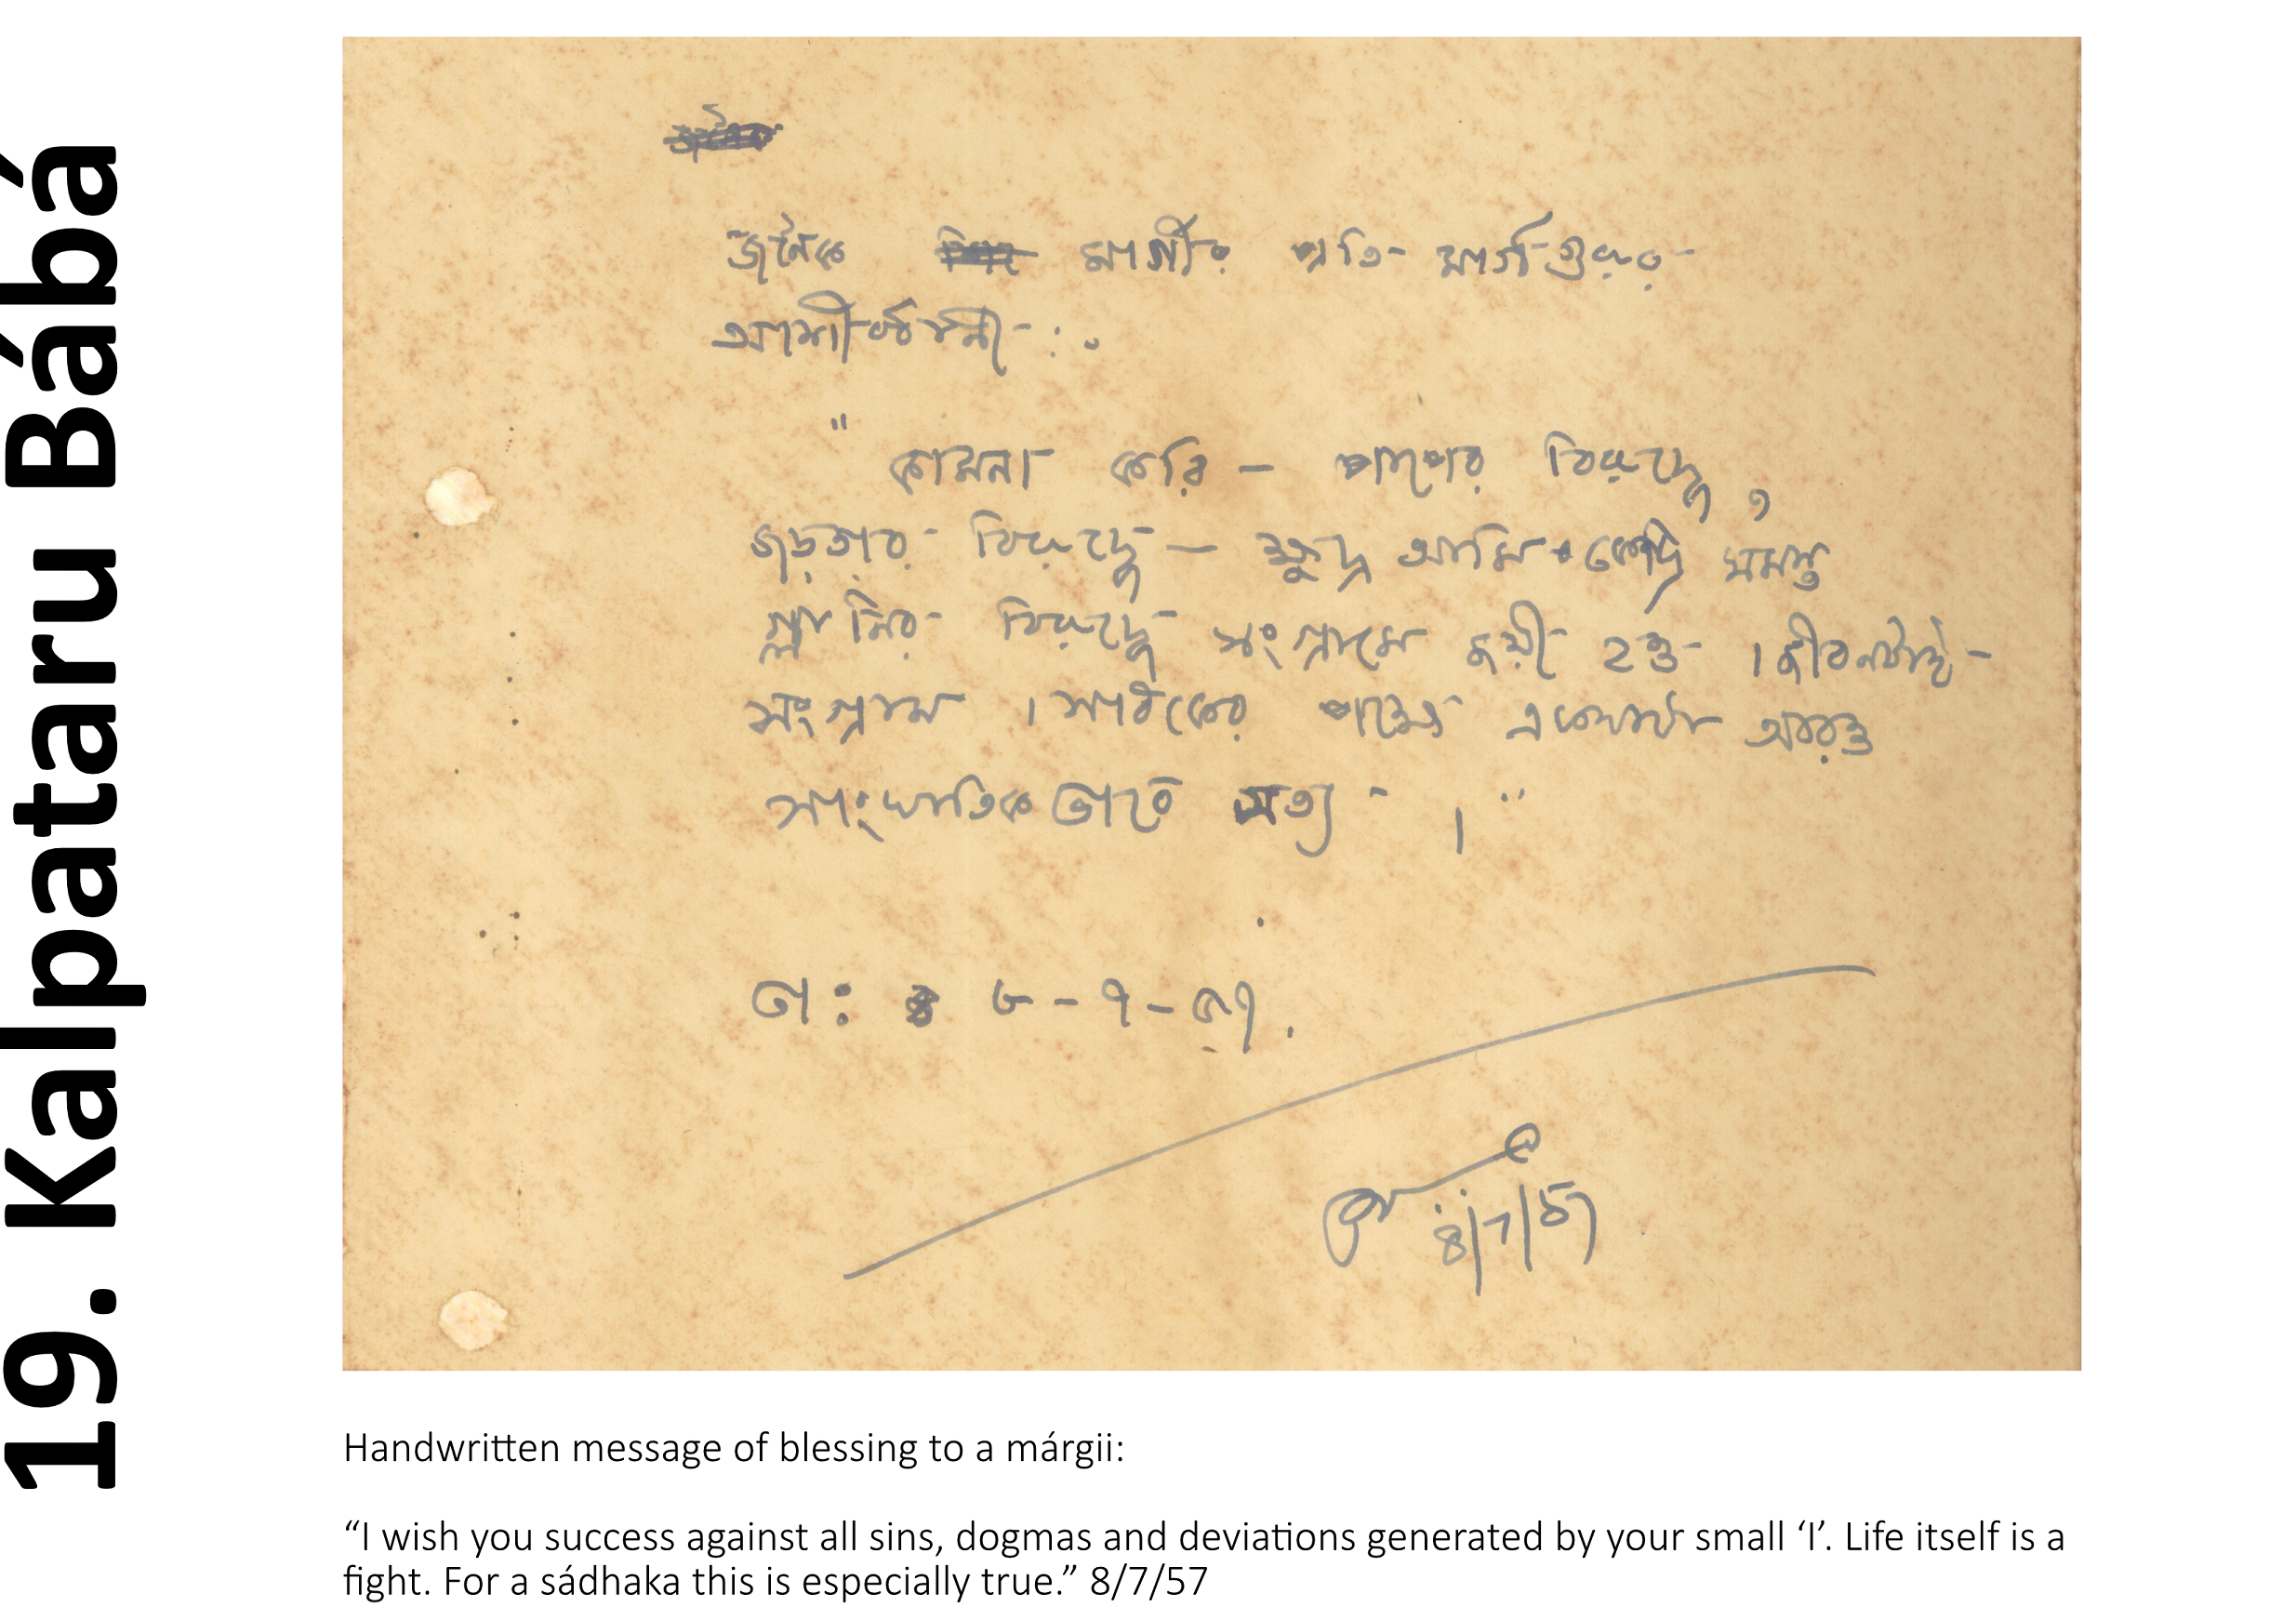 19. Kalpataru Bábá
জনৈক মার্গীর প্রতি মার্গগুরুর
আশীর্ব্বাণী :
"কামনা করি – পাপের বিরুদ্ধে,
জড়তার বিরুদ্ধে – ক্ষুদ্র আমি কেন্দ্রি সমস্ত
গ্লানির বিরুদ্ধে সংগ্রামে জয়ী হও । জীবনটাই
সংগ্রাম । সাধকের পক্ষে একথাটা আরও
সাংঘাতিক ভাবে সত্য ।"
তা: ৮-৭-৫৭.
8/7/57
Handwritten message of blessing to a márgii:
“I wish you success against all sins, dogmas and deviations generated by your small ‘I’. Life itself is a
fight. For a sádhaka this is especially true.” 8/7/57